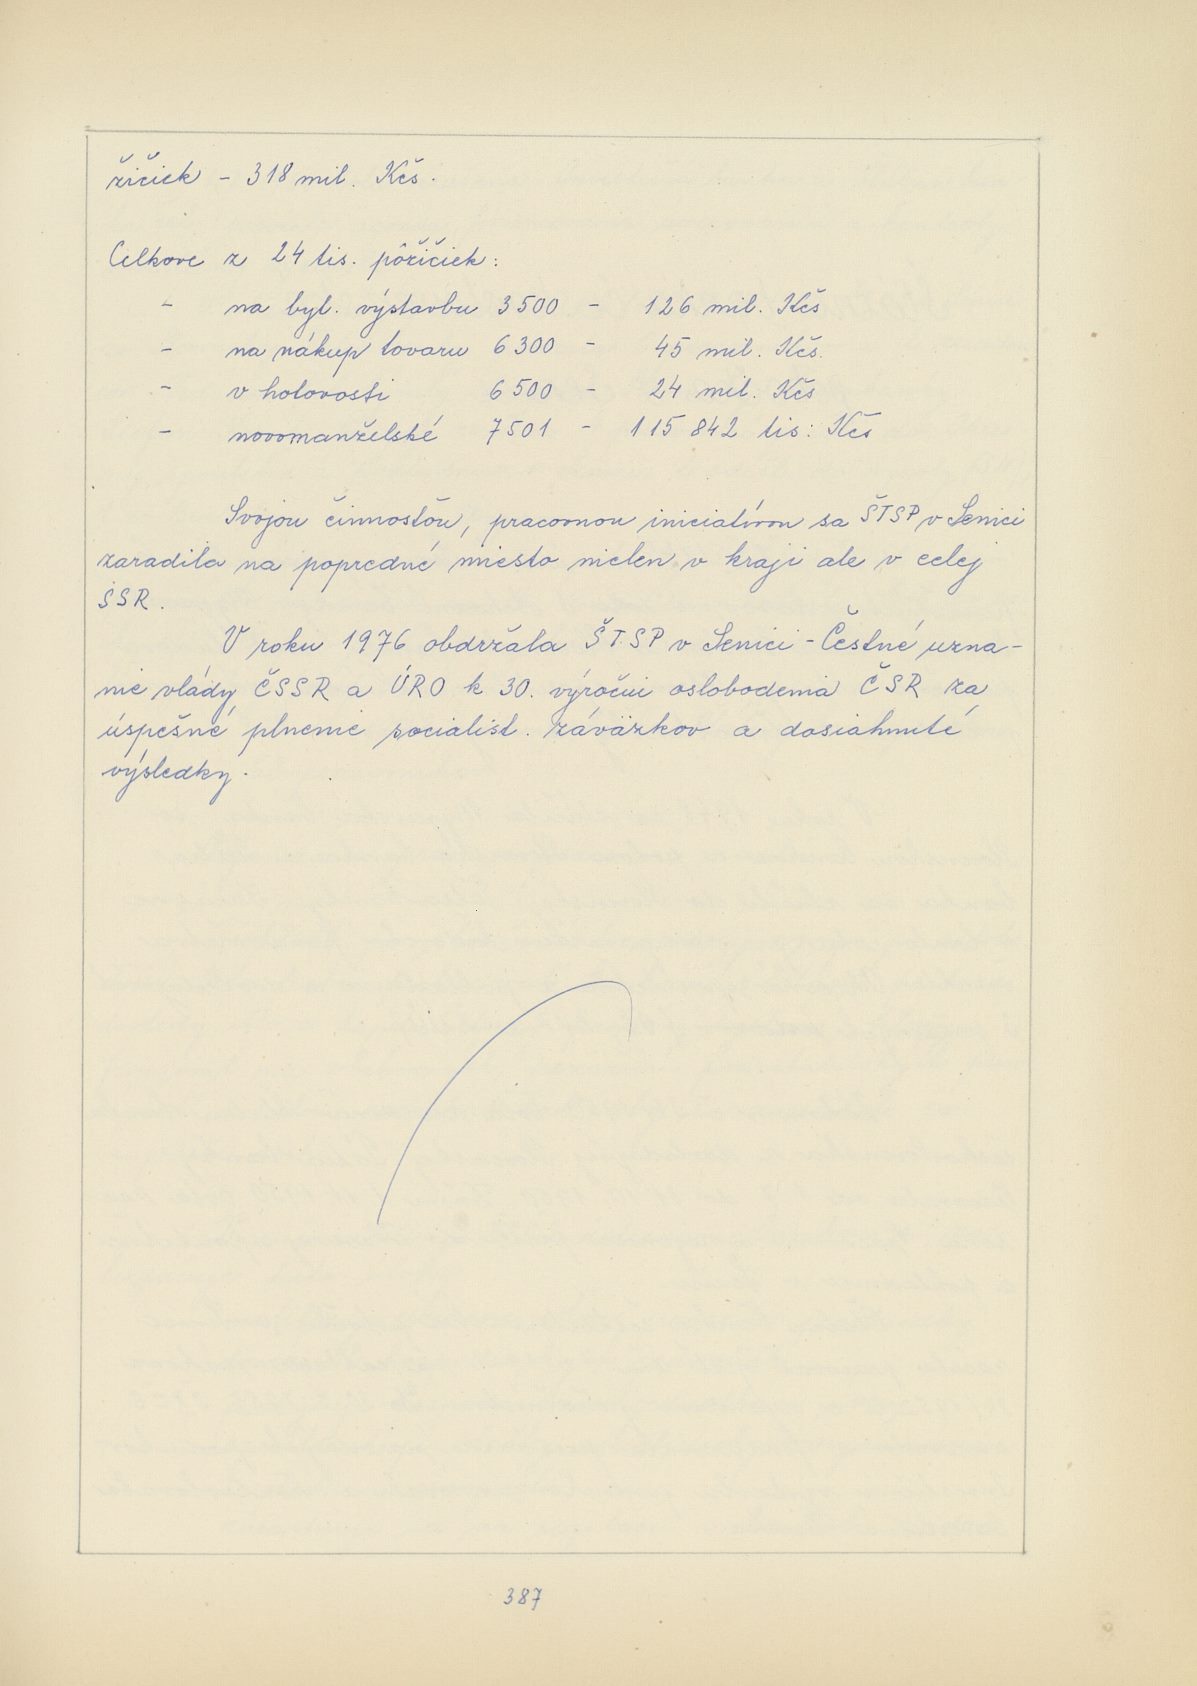 žičiek - 318 mil. Kčs.
Celkove z 24 tis. pôžičiek:
- na byt. výstavbu 3500 - 126 mil. Kčs
- na nákup tovaru 6300 - 45 mil. Kčs.
- v hotovosti 6500 - 24 mil. Kčs
- novomanželské 7501 - 115 842 tis: Kčs
Svojou činnosťou, pracovnou iniciatívou sa ŠTSP v Senici
zaradila na popredné miesto nielen v kraji ale v celej
SSR.
V roku 1976 obdržala ŠTSP v Senici - Čestné uzna-
nie vlády ČSSR a ÚRO k 30. výročiu oslobodenia ČSR za
úspešné plnenie socialist. záväzkov a dosiahnuté
výsledky.
387